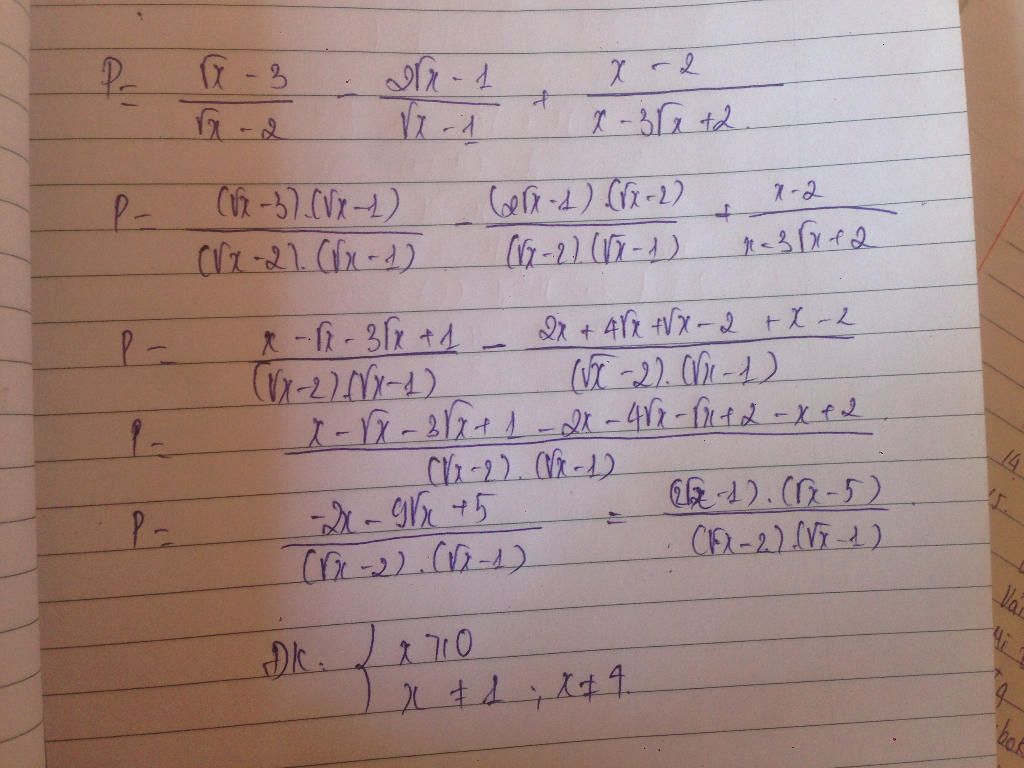 P = (√x - 3)/(√x - 2) - (2√x - 1)/(√x - 1) + (x - 2)/(x - 3√x + 2)
P = ((√x - 3).(√x - 1))/((√x - 2).(√x - 1)) - ((2√x - 1).(√x - 2))/((√x - 2)(√x - 1)) + (x - 2)/(x - 3√x + 2)
P = (x - √x - 3√x + 1)/((√x - 2).(√x - 1)) - (2x + 4√x + √x - 2 + x - 2)/((√x - 2).(√x - 1))
P = (x - √x - 3√x + 1 - 2x - 4√x - √x + 2 - x + 2)/((√x - 2).(√x - 1))
P = (-2x - 9√x + 5)/((√x - 2).(√x - 1)) = ((2√x - 1).(√x - 5))/((√x - 2).(√x - 1))
ĐK: { x ≥ 0
x ≠ 1 ; x ≠ 4.
14
5.